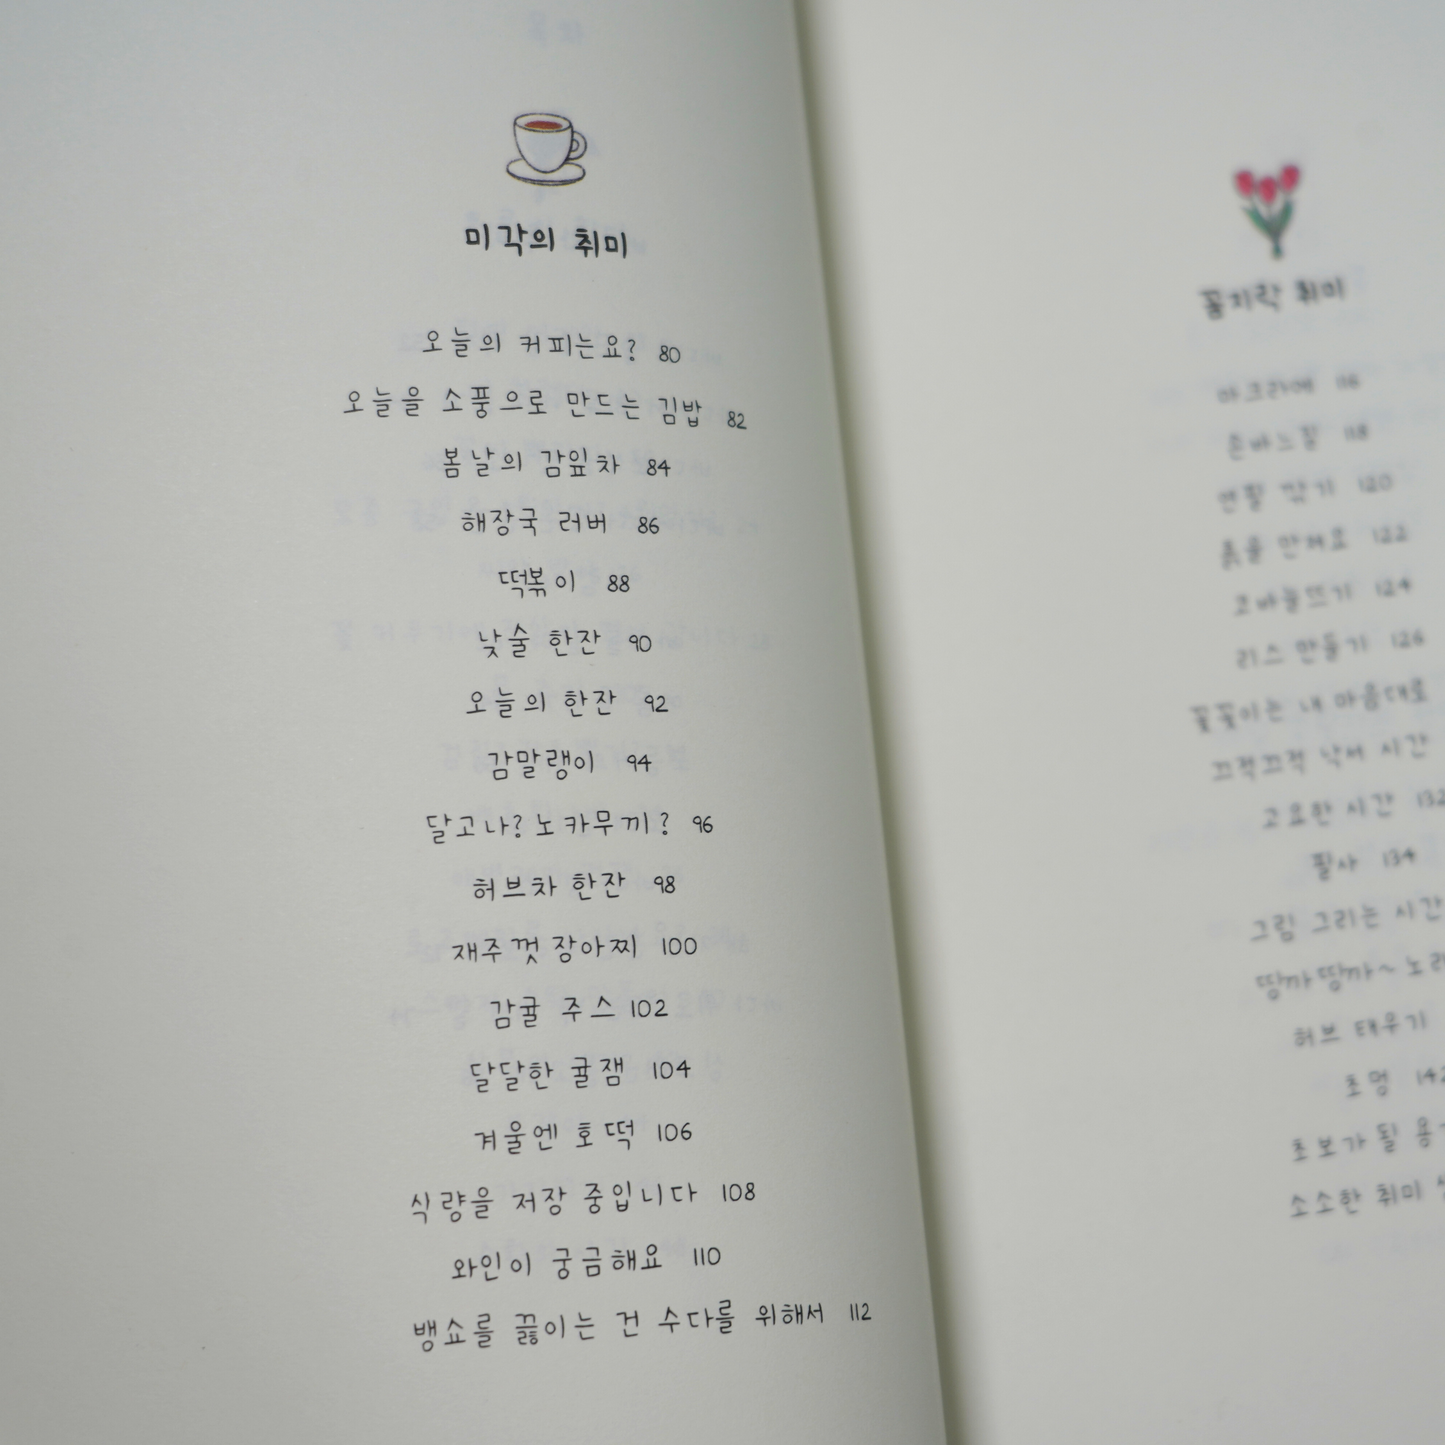 미각의 취미
오늘의 커피는요? 80
오늘을 소풍으로 만드는 김밥 82
봄날의 감잎차 84
해장국 러버 86
떡볶이 88
낮술 한잔 90
오늘의 한잔 92
감말랭이 94
달고나? 노카무끼? 96
허브차 한잔 98
재주껏 장아찌 100
감귤 주스 102
달달한 귤잼 104
겨울엔 호떡 106
식량을 저장 중입니다 108
와인이 궁금해요 110
뱅쇼를 끓이는 건 수다를 위해서 112
꼼지락 취미
마크라메 116
손바느질 118
연필 깎기 120
흙을 만져요 122
코바늘뜨기 124
리스 만들기 126
꽃꽂이는 내 마음대로
끄적끄적 낙서 시간
고요한 시간 132
필사 134
그림 그리는 시간
땅까땅까~
허브 태우기
초멍 142
초보가 될
소소한 취미